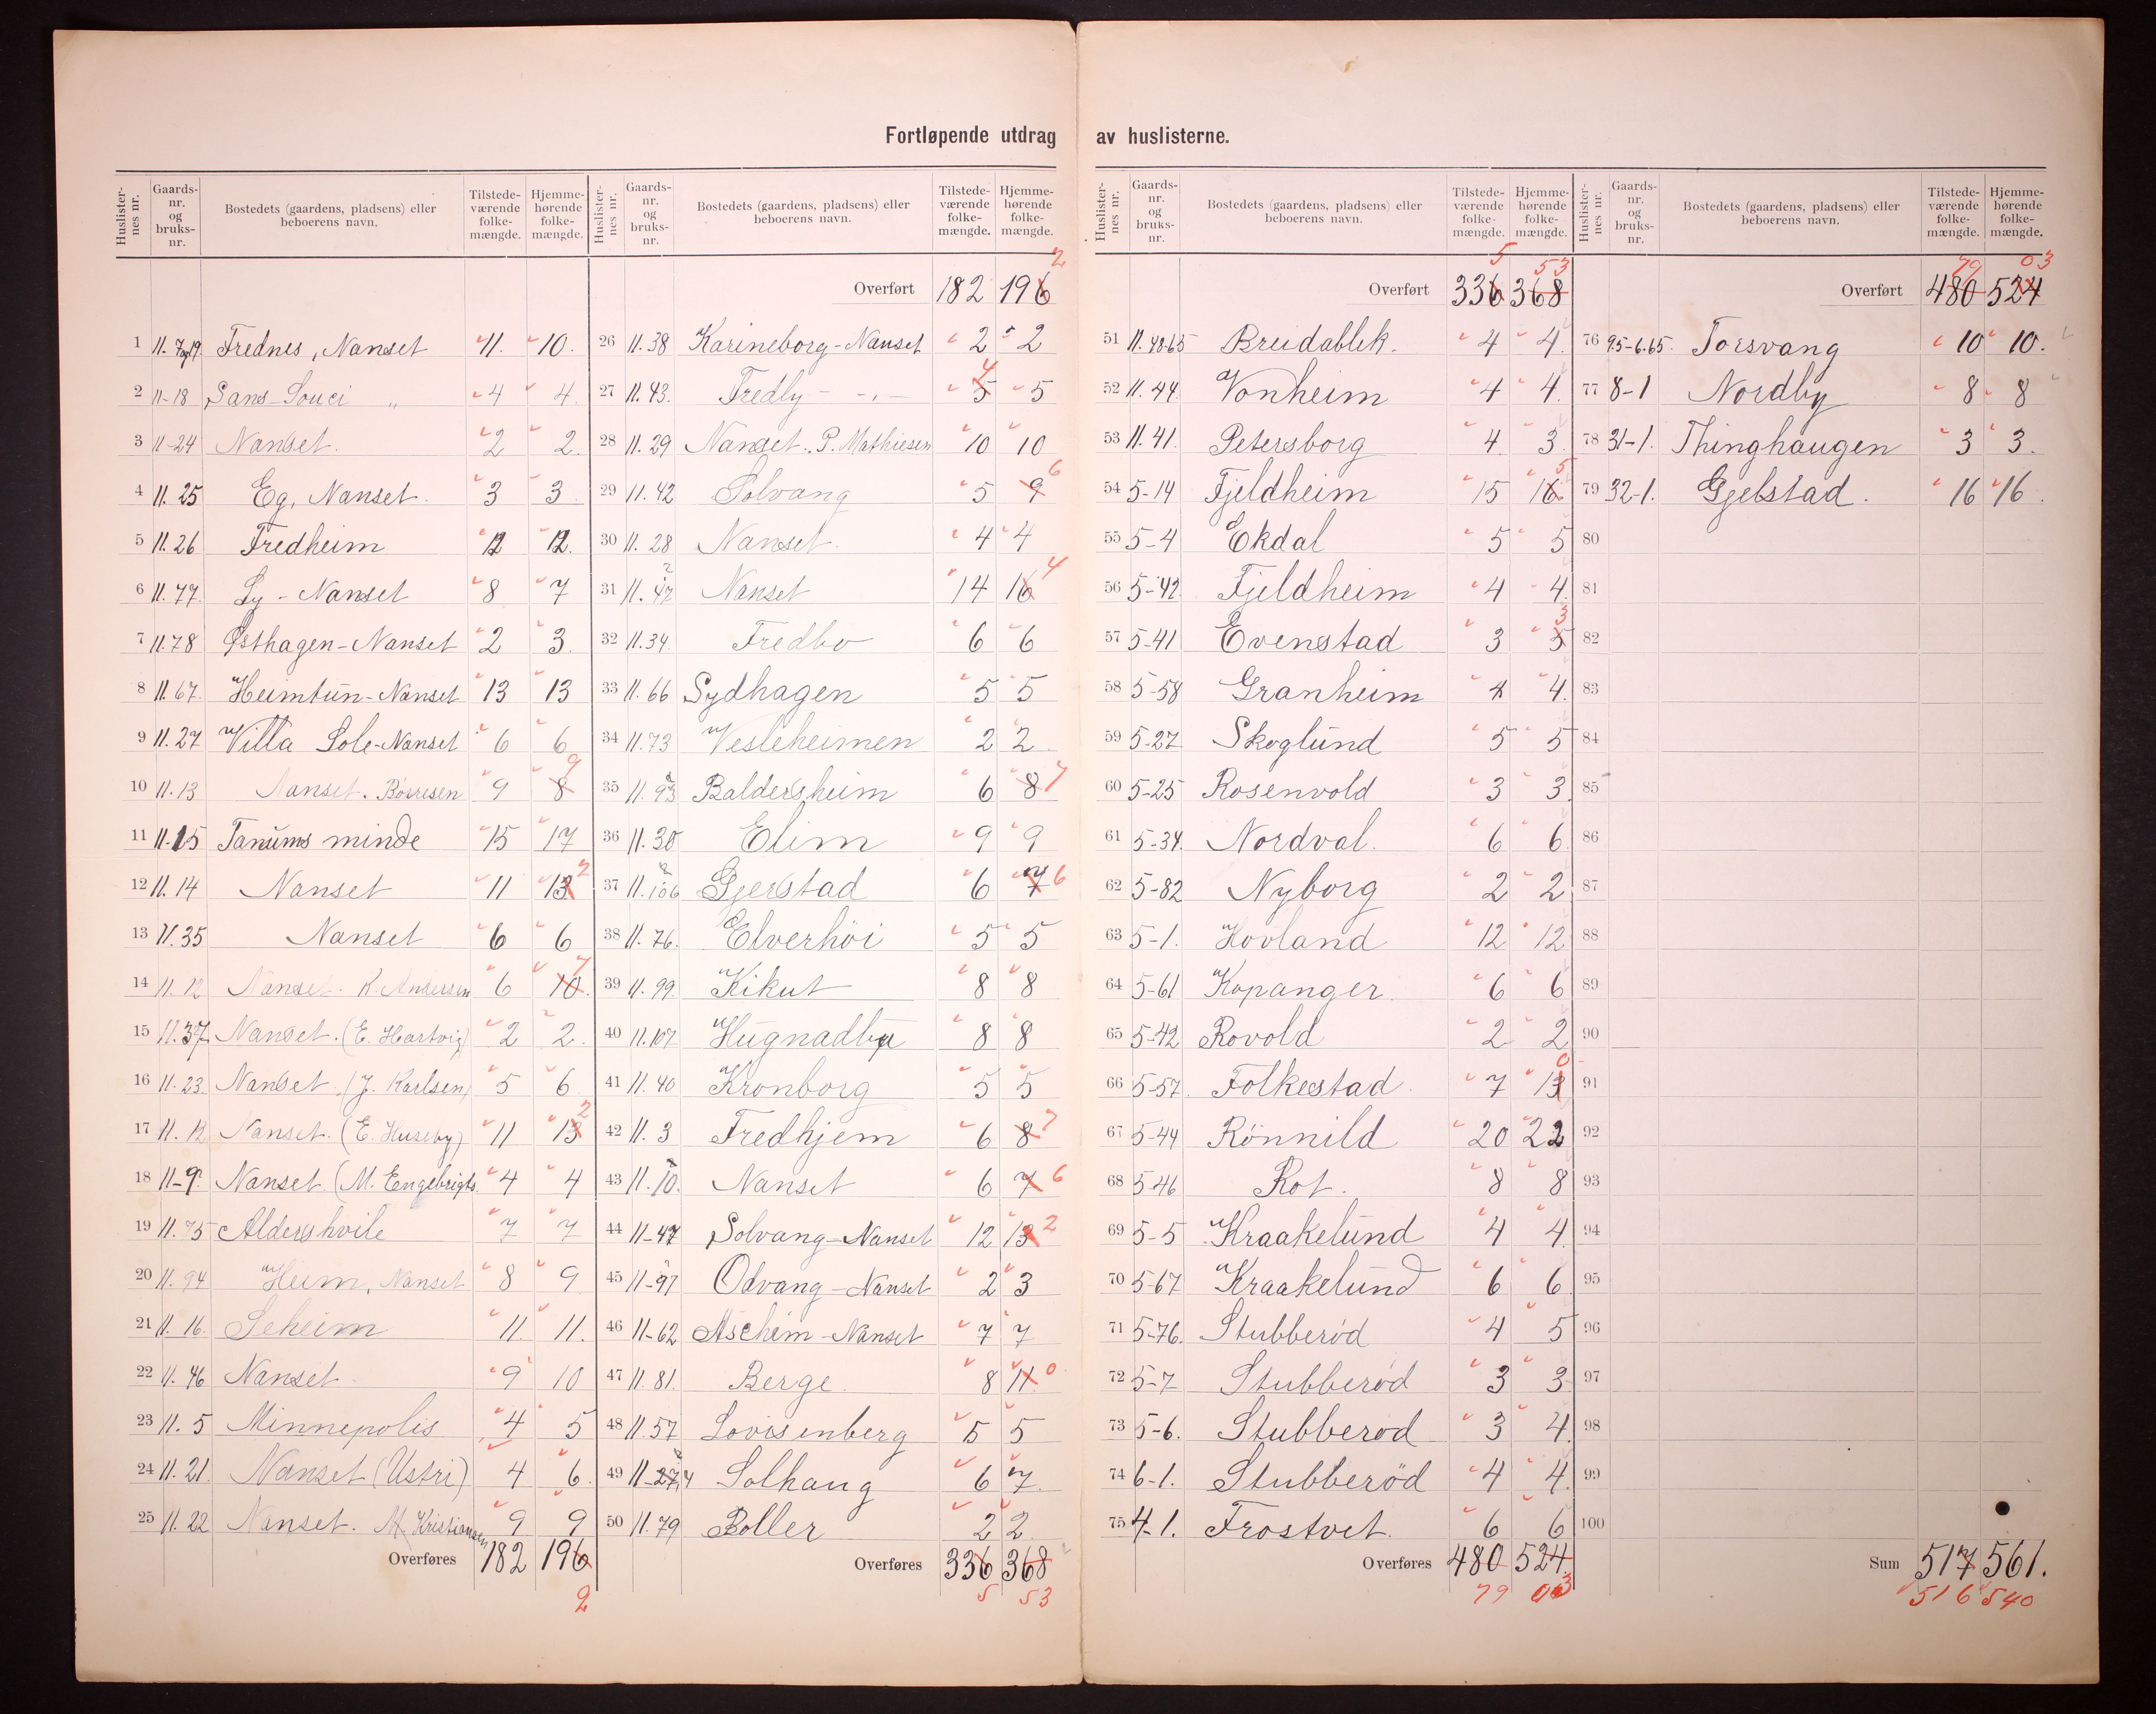 Fortløpende utdrag av huslisterne.
Huslisternes nr. Gaards-nr. og bruks-nr. Bostedets (gaardens, pladsens) eller beboerens navn. Tilstede-værende folke-mængde. Hjemme-hørende folke-mængde.
1 11. 7 og 19. Frednes, Nanset 11. 10.
2 11-18 Sans-Souci „ 4 4.
3 11-24 Nanset. 2 2.
4 11.25 Eg, Nanset. 3 3
5 11.26 Fredheim 12 12.
6 11.77. Ly - Nanset 8 7
7 11.78 Østhagen-Nanset 2 3.
8 11.67. Heimtun-Nanset 13 13
9 11.27 Villa Sole-Nanset 6 6
10 11.13 Nanset. Børresen 9 8 9
11 11.15 Tanums minde 15 17
12 11.14 Nanset 11 13 2
13 11.35 Nanset 6 6
14 11.12 Nanset. K. Andersen 6 10. 7
15 11.37. Nanset. (E. Hartvig) 2 2.
16 11.23. Nanset. (J. Karlsen) 5 6
17 11.12 Nanset. (E. Huseby) 11 13 2
18 11-9. Nanset (M. Engebrigts. 4 4
19 11.75 Aldershvile 7 7
20 11.94 Heim, Nanset 8 9
21 11.16. Seheim 11. 11.
22 11.46 Nanset. 9 10
23 11.5 Minnepolis 4 5
24 11.21. Nanset (Ustri) 4 6.
25 11.22 Nanset. M. Kristiansen 9 9
Overføres 182 196
2
Huslisternes nr. Gaards-nr. og bruks-nr. Bostedets (gaardens, pladsens) eller beboerens navn. Tilstede-værende folke-mængde. Hjemme-hørende folke-mængde.
Overført 182 196 2
26 11.38 Karineborg-Nanset 2 2
27 11.43. Fredly - -„- 5 4 5
28 11.29 Nanset. P. Mathiesen 10 10
29 11.42 Solvang 5 9 6
30 11.28 Nanset. 4 4
31 11.47 Nanset 14 16 4
32 11.34. Fredbo 6 6
33 11.66 Sydhagen 5 5
34 11.73 Vesleheimen 2 2
35 11.93 Baldersheim 6 8 7
36 11.30 Elim 9 9
37 11.106 Gjerstad 6 7 6
38 11.76. Elverhöi 5 5
39 11.99. Kikut 8 8
40 11.107 Hugnadby 8 8
41 11.40 Kronborg 5 5
42 11.3 Fredhjem 6 8 7
43 11.10. Nanset 6 7 6
44 11-47 Solvang-Nanset 12 13 2
45 11-97 Odvang-Nanset 2 3
46 11-62 Ascheim-Nanset 7 7
47 11.81. Berge. 8 11 0
48 11.57 Lovisenberg 5 5
49 11-27,4 Solhaug 6 7.
50 11.79 Boller 2 2
Overføres 336 368
5 53
Huslisternes nr. Gaards-nr. og bruks-nr. Bostedets (gaardens, pladsens) eller beboerens navn. Tilstede-værende folke-mængde. Hjemme-hørende folke-mængde.
5 53
Overført 336 368
51 11.48-65 Breidablik. 4 4.
52 11.44. Vonheim 4 4.
53 11.41. Petersborg 4 3
54 5-14 Fjeldheim 15 16 5
55 5-4 Ekdal 5 5
56 5-42. Fjeldheim 4 4.
57 5-41 Evenstad 3 5 3
58 5-58 Granheim 4 4.
59 5-27 Skoglund 5 5
60 5-25 Rosenvold 3 3.
61 5-34. Nordval. 6 6
62 5-82 Nyborg 2 2
63 5-1. Hovland 12 12
64 5-61 Kopanger. 6 6
65 5-42 Rovold 2 2
66 5-57. Folkestad. 7 13 0
67 5-44 Rönnild 20 22
68 5-46 Rot. 8 8
69 5-5 Kraakelund 4 4.
70 5-67 Kraakelund 6 6
71 5-76. Stubberød 4 5
72 5-7 Stubberød 3 3
73 5-6. Stubberød 3 4.
74 6-1. Stubberød 4 4.
75 4-1. Frostvet. 6 6
Overføres 480 524.
79 03
Huslisternes nr. Gaards-nr. og bruks-nr. Bostedets (gaardens, pladsens) eller beboerens navn. Tilstede-værende folke-mængde. Hjemme-hørende folke-mængde.
79 03
Overført 480 524
76 95-6.65. Torsvang 10 10.
77 8-1 Nordby 8 8
78 31-1. Thinghaugen 3 3.
79 32-1. Gjelstad. 16 16.
80
81
82
83
84
85
86
87
88
89
90
91
92
93
94
95
96
97
98
99
100
Sum 517 561.
516 540